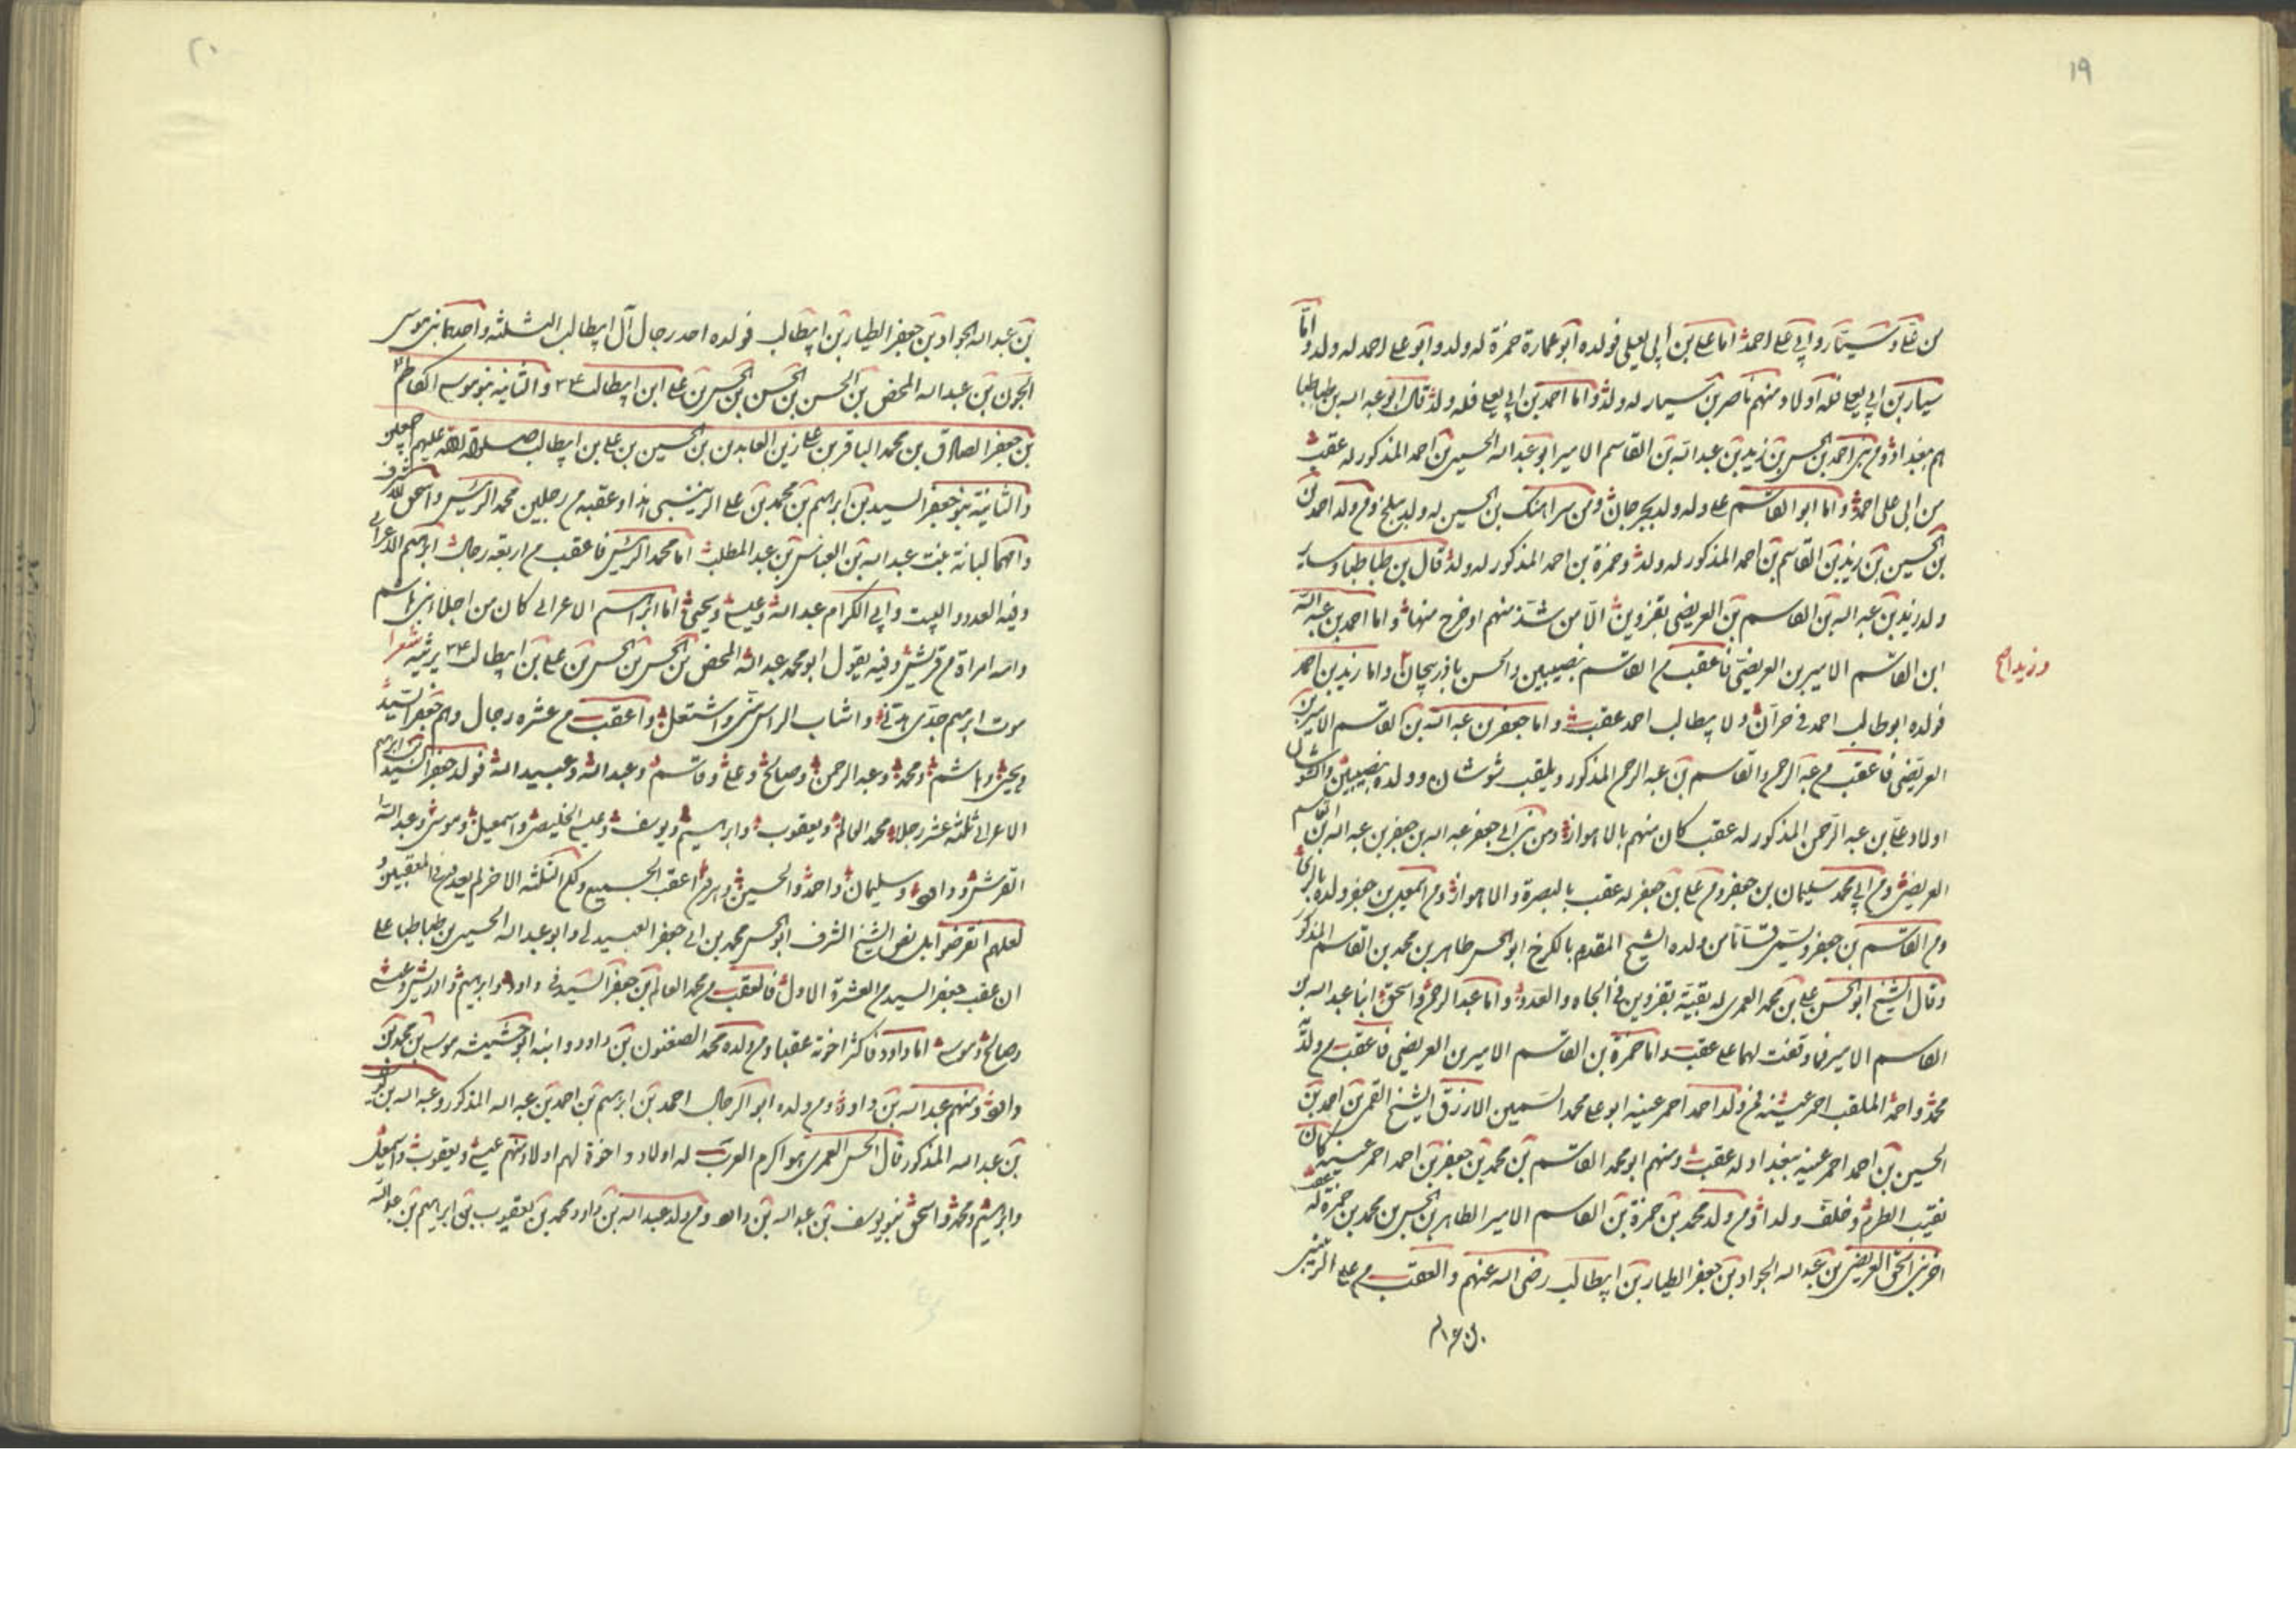 ١٩
من علی وسیتار وابی علی احمد اما علی بن ابی یعلی فولده ابو عمارة حمزة له ولد وابو علی احمد له ولد واما
سیار بن ابی یعلی فله اولاد منهم ناصر بن سیار له ولد واما احمد بن ابی یعلی فله ولد قال ابو عبد الله بن طباطبا
هم ببغداد ومن بنی احمد بن الحسن بن زید بن عبد الله بن القاسم الامیر ابو عبد الله الحسین بن احمد المذکور له عقب
من ابی علی احمد واما ابو القاسم علی وله ولد بجرجان ومن سراهنک بن الحسین له ولد ببلخ ومن ولد احمد بن
بن الحسین بن زید بن القاسم بن احمد المذکور له ولد وحمزة بن احمد المذکور له ولد قال بن طباطبا وسایر
ولد زید بن عبد الله بن القاسم بن العریضی بقزوین الا من شذ منهم او خرج منها واما احمد بن عبد الله
ابن القاسم الامیر بن العریضی فاعقب من القاسم بنصیبین والحسن باذربیجان واما زید بن احمد
وزید اصح
فولده ابوطالب احمد فی حران ولابیطالب احمد عقب واما جعفر بن عبد الله بن القاسم الامیر بن
العریضی فاعقب من عبد الرحمن والقاسم بن عبد الرحمن المذکور ویلقب شوشان وولده بنصیبین
اولاد علی بن عبد الرحمن المذکور له عقب کان منهم بالاهواز ومن بنی ابی جعفر عبد الله بن جعفر بن عبد الله بن القاسم
العریضی ومن ابی محمد سلیمان بن جعفر ومن علی بن جعفر له عقب بالبصرة والاهواز ومن اسمعیل بن جعفر ولده بالری
ومن القاسم بن جعفر ویسمی من ولده الشیخ المقدم بالکرخ ابو الحسن طاهر بن محمد بن القاسم المذکور
وقال الشیخ ابو الحسن علی بن محمد العمری له بقیة بقزوین فی الجاه والعدد واما عبد الرحمن واسحق ابنا عبد الله بن
القاسم الامیر فما وقفت لهما علی عقب واما حمزة بن القاسم الامیر بن العریضی فاعقب من ولدیه
محمد واحمد الملقب احمر عینه فمن ولد احمد احمر عینه ابو علی محمد السمین الازرق الشیخ القمی بن احمد بن
الحسین بن احمد احمر عینه ببغداد له عقب ومنهم ابو محمد القاسم بن محمد بن جعفر بن احمد احمر عینه کان
نقیب الطرم وخلف ولدا ومن ولد محمد بن حمزة بن القاسم الامیر الطاهر بن الحسن بن محمد بن حمزة له عقب
اخر بنی اسحق العریضی بن عبد الله الجواد بن جعفر الطیار بن ابیطالب رضی الله عنهم والعقب من علی الزینبی
٢٠
بن عبد الله الجواد بن جعفر الطیار بن ابیطالب فولده احد رجال آل ابیطالب الثلثه واحدها بنو موسی
الجون بن عبد الله المحض بن الحسن بن الحسن بن علی ابن ابیطالب والثانیه بنو موسی الکاظم
بن جعفر الصادق بن محمد الباقر بن علی زین العابدین بن الحسین بن علی بن ابیطالب صلوات الله علیهم اجمعین
والثانیة بنو جعفر السید بن ابراهیم بن محمد بن علی الزینبی هذا وعقبه من رجلین محمد الرئیس واسحق الاشرف
وامهما لبانة بنت عبد الله بن العباس بن عبد المطلب اما محمد الرئیس فاعقب من اربعة رجال ابراهیم الاعرابی
وفیه العدد والبیت وابی الکرام عبد الله وعیسی ویحیی اما ابراهیم الاعرابی کان من اجلاء بنی هاشم
وامه امراة من قریش وفیه یقول ابو محمد عبد الله المحض بن الحسن بن الحسن بن علی بن ابیطالب یرثیه شعرا
موت ابرهیم جدی هدنی واشاب الراس منی واشتعل واعقب من عشره رجال وهم جعفر السید
ویحیی وهاشم ومحمد وعبد الرحمن وصالح وعلی وقاسم وعبد الله وعبید الله فولد جعفر السید بن ابرهیم
الاعرابی ثلثة عشر رجلا محمد العالم ویعقوب وابراهیم ویوسف وعیسی الخلیصی واسمعیل وموسی وعبد الله
القرشی وداود وسلیمان واحمد والحسین وهرون اعقب الجمیع ولکن الثلثه الاخر لم یعد من فی المعقبین و
لعلهم انقرضوا بل نص الشیخ الشرف ابو الحسن محمد بن ابی جعفر العبیدلی وابو عبد الله الحسین بن طباطبا علی
ان عقب جعفر السید من العشرة الاول فالعقب من محمد العالم بن جعفر السید فی داود وابراهیم وادریس وعیسی
وصالح وموسی اما داود فاکثر اخوته عقبا ومن ولده محمد الصفنون بن داود وابنه ابو حشیشه موسی بن محمد بن
داود ومنهم عبد الله بن داود ومن ولده ابو الرجال احمد بن ابرهیم بن احمد بن عبد الله المذکور وعبد الله بن
بن عبد الله المذکور قال الحسن العمری هو اکرم العرب له اولاد واخوة لهم اولاد منهم عیسی ویعقوب واسمعیل
وابراهیم ومحمد واسحق بنو یوسف بن عبد الله بن داود ومن ولد عبد الله بن داود محمد بن یعقوب بن ابراهیم بن عبد الله